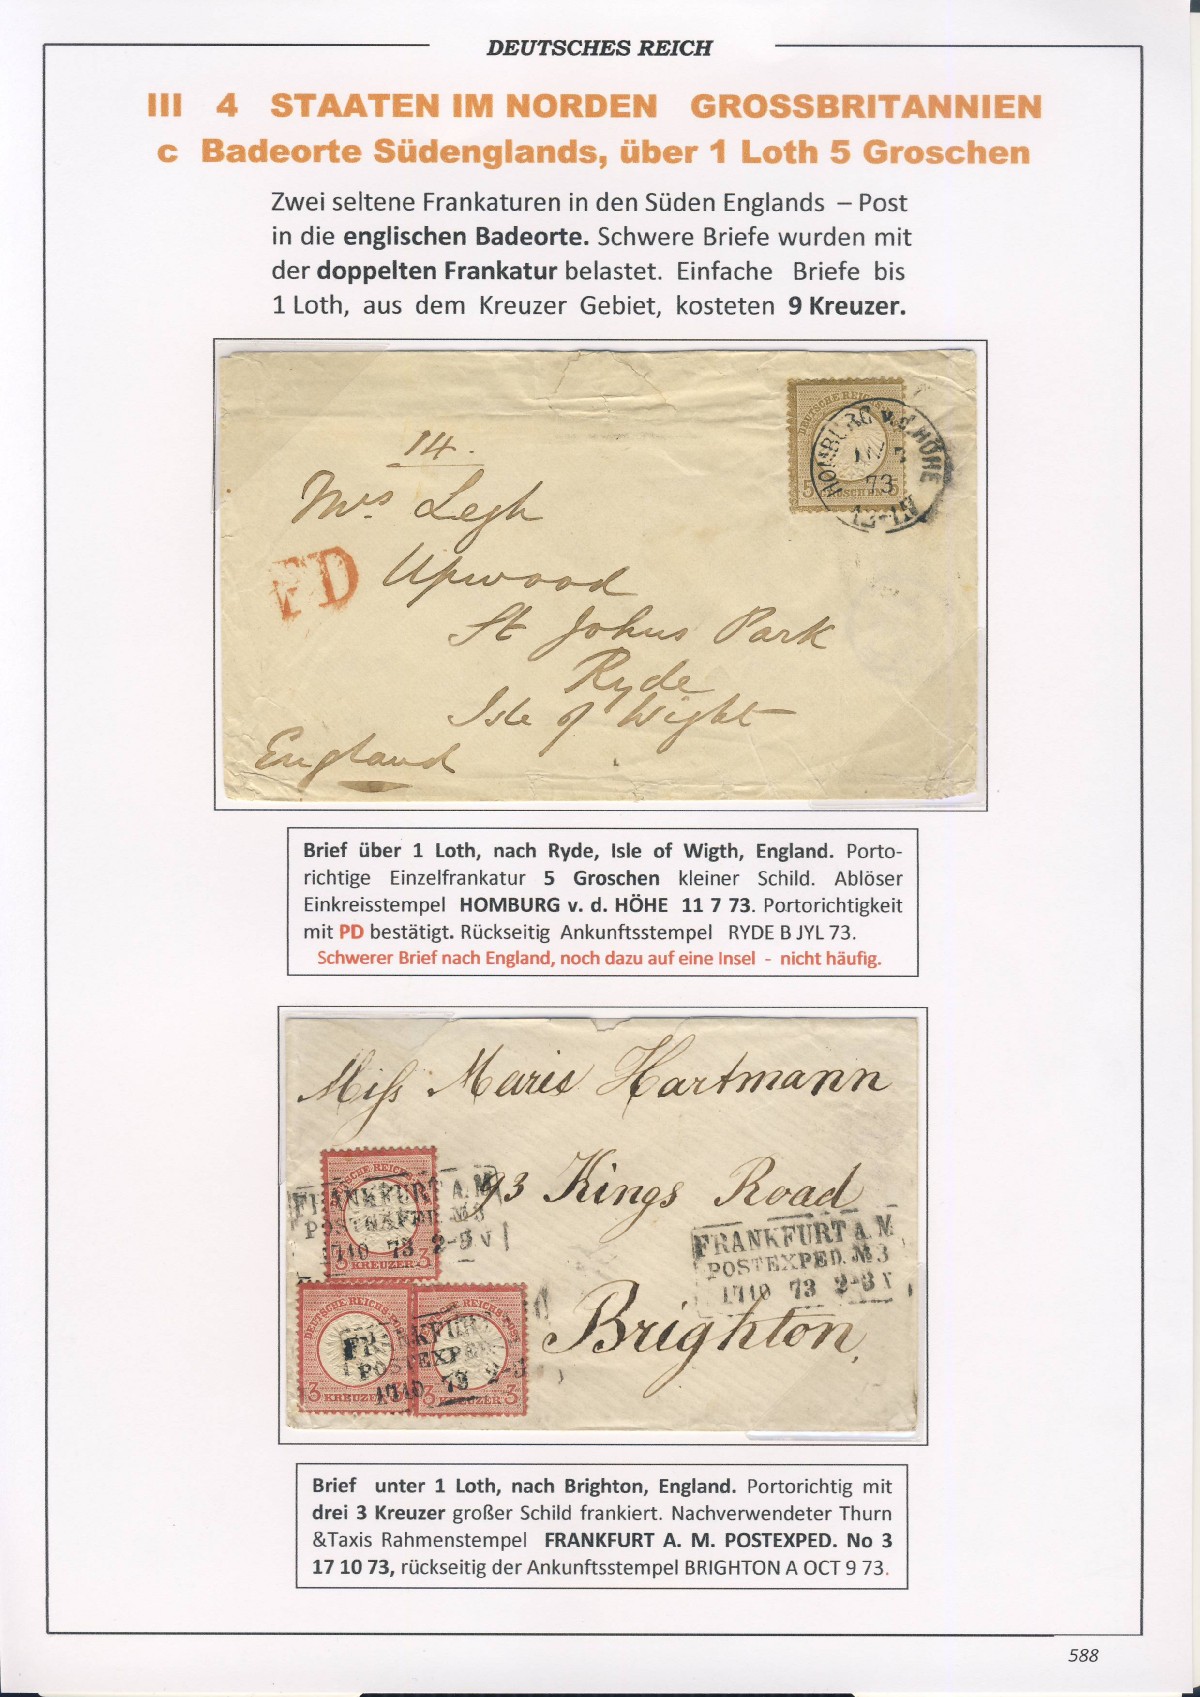 DEUTSCHES REICH
III 4 STAATEN IM NORDEN GROSSBRITANNIEN
c Badeorte Südenglands, über 1 Loth 5 Groschen
Zwei seltene Frankaturen in den Süden Englands – Post
in die englischen Badeorte. Schwere Briefe wurden mit
der doppelten Frankatur belastet. Einfache Briefe bis
1 Loth, aus dem Kreuzer Gebiet, kosteten 9 Kreuzer.
DEUTSCHE REICHS
5 GROSCHEN 5
HOMBURG v.d. HÖHE
73
14.
Mrs. Legh
PD
Upwood
St Johns Park
Ryde
Isle of Wight
England
Brief über 1 Loth, nach Ryde, Isle of Wigth, England. Porto-
richtige Einzelfrankatur 5 Groschen kleiner Schild. Ablöser
Einkreisstempel HOMBURG v. d. HÖHE 11 7 73. Portorichtigkeit
mit PD bestätigt. Rückseitig Ankunftsstempel RYDE B JYL 73.
Schwerer Brief nach England, noch dazu auf eine Insel - nicht häufig.
Miss Marie Hartmann
93 Kings Road
Brighton,
FRANKFURT A. M.
POSTEXPED. No 3
17 10 73 2-3 V
3 KREUZER 3
FRANKFURT A. M
POSTEXPED. No 3
17 10 73 2-3 V
DEUTSCHE REICHS-POST
3 KREUZER
REICHS-POST
3 KREUZER 3
FRANKFURT
POSTEXPED
17 10 73 2-3
Brief unter 1 Loth, nach Brighton, England. Portorichtig mit
drei 3 Kreuzer großer Schild frankiert. Nachverwendeter Thurn
&Taxis Rahmenstempel FRANKFURT A. M. POSTEXPED. No 3
17 10 73, rückseitig der Ankunftsstempel BRIGHTON A OCT 9 73.
588